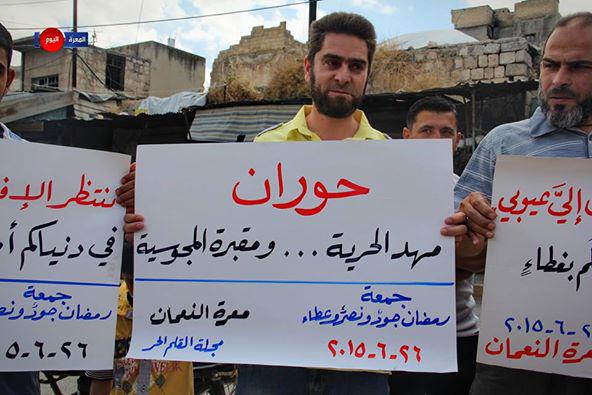 المعرة اليوم
حوران
مهد الحرية ... ومقبرة المجوسية
جمعة
رمضان جودٌ ونصرٌ وعطاء
٢٦-٦-٢٠١٥
معرة النعمان
مجلة القلم الحر
إليَّ عيوبي
بغطاءٍ
٢٠١٥-٦-٢
معرة النعمان
ننتظر الإف
في دنياكم أ
جمعة
رمضان جودٌ ونص
٢٦-٦-٥